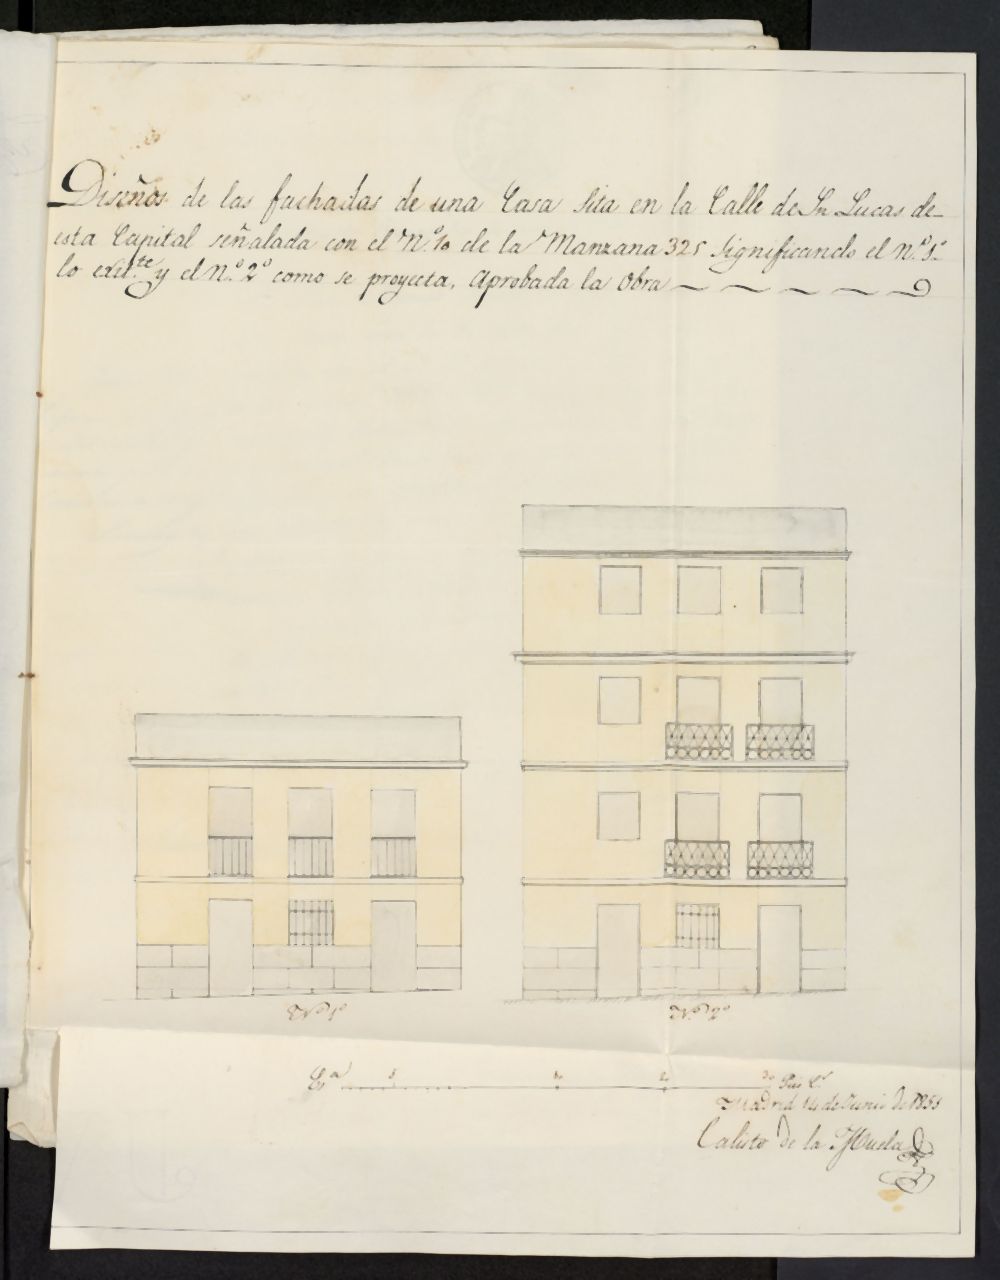 Diseños de las fachadas de una Casa Sita en la Calle de Sn Lucas de
esta Capital señalada con el N.º 10 de la Manzana 325 Significando el n.º 1.º
lo exis.te y el N.º 2º como se proyecta, Aprobada la Obra
N.º 1º
N.º 2º
Es.a 5 10 20 30 Pies C.s
Madrid 14 de Junio de 1855
Calisto de la Muela